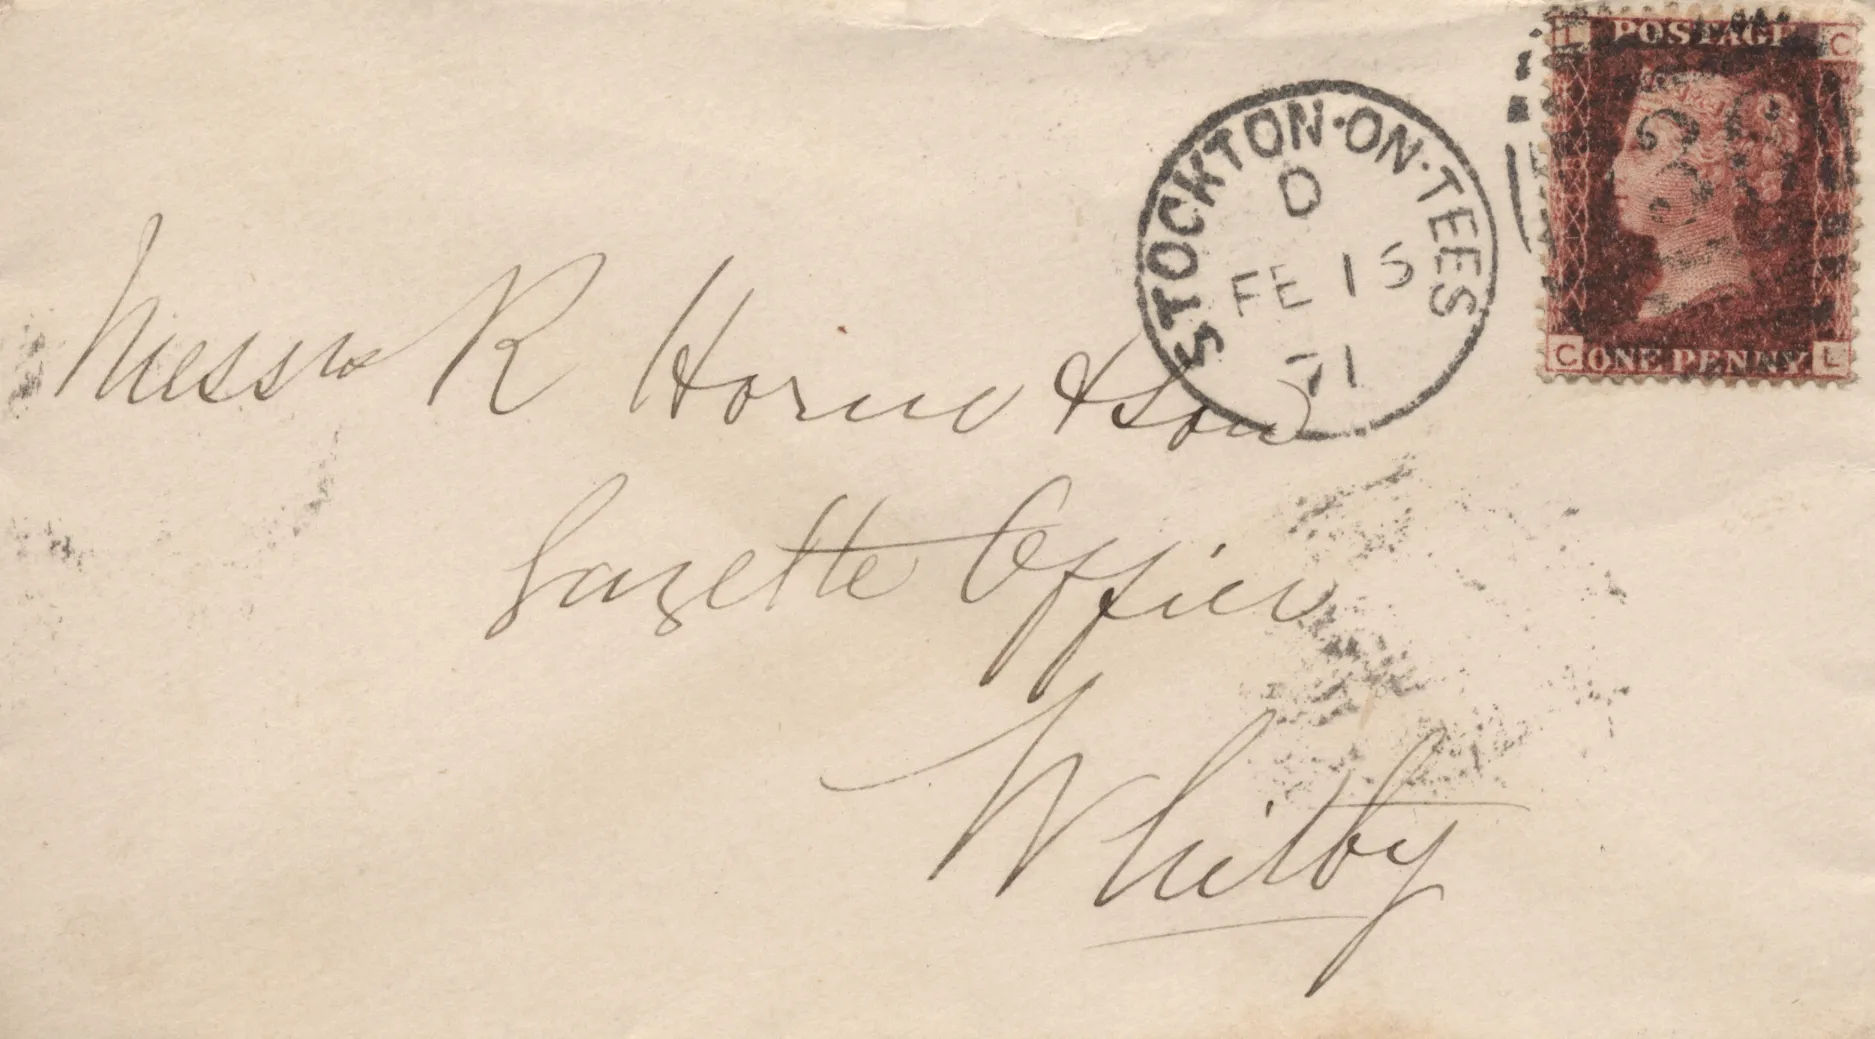 L POSTAGE C
STOCKTON·ON·TEES
D
FE 15
71
C ONE PENNY L
Messrs R Horne & Son
Gazette Office
Whitby